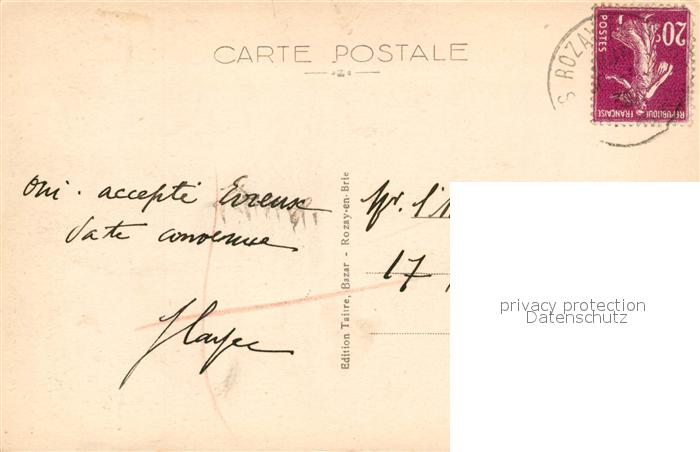 CARTE POSTALE
S ROZAY
20c
POSTES
REPUBLIQUE FRANCAISE
oui. accepté Evreux
date convenue
Edition Taitre, Bazar - Rozay-en-Brie
Mr. l'
17
privacy protection
Datenschutz